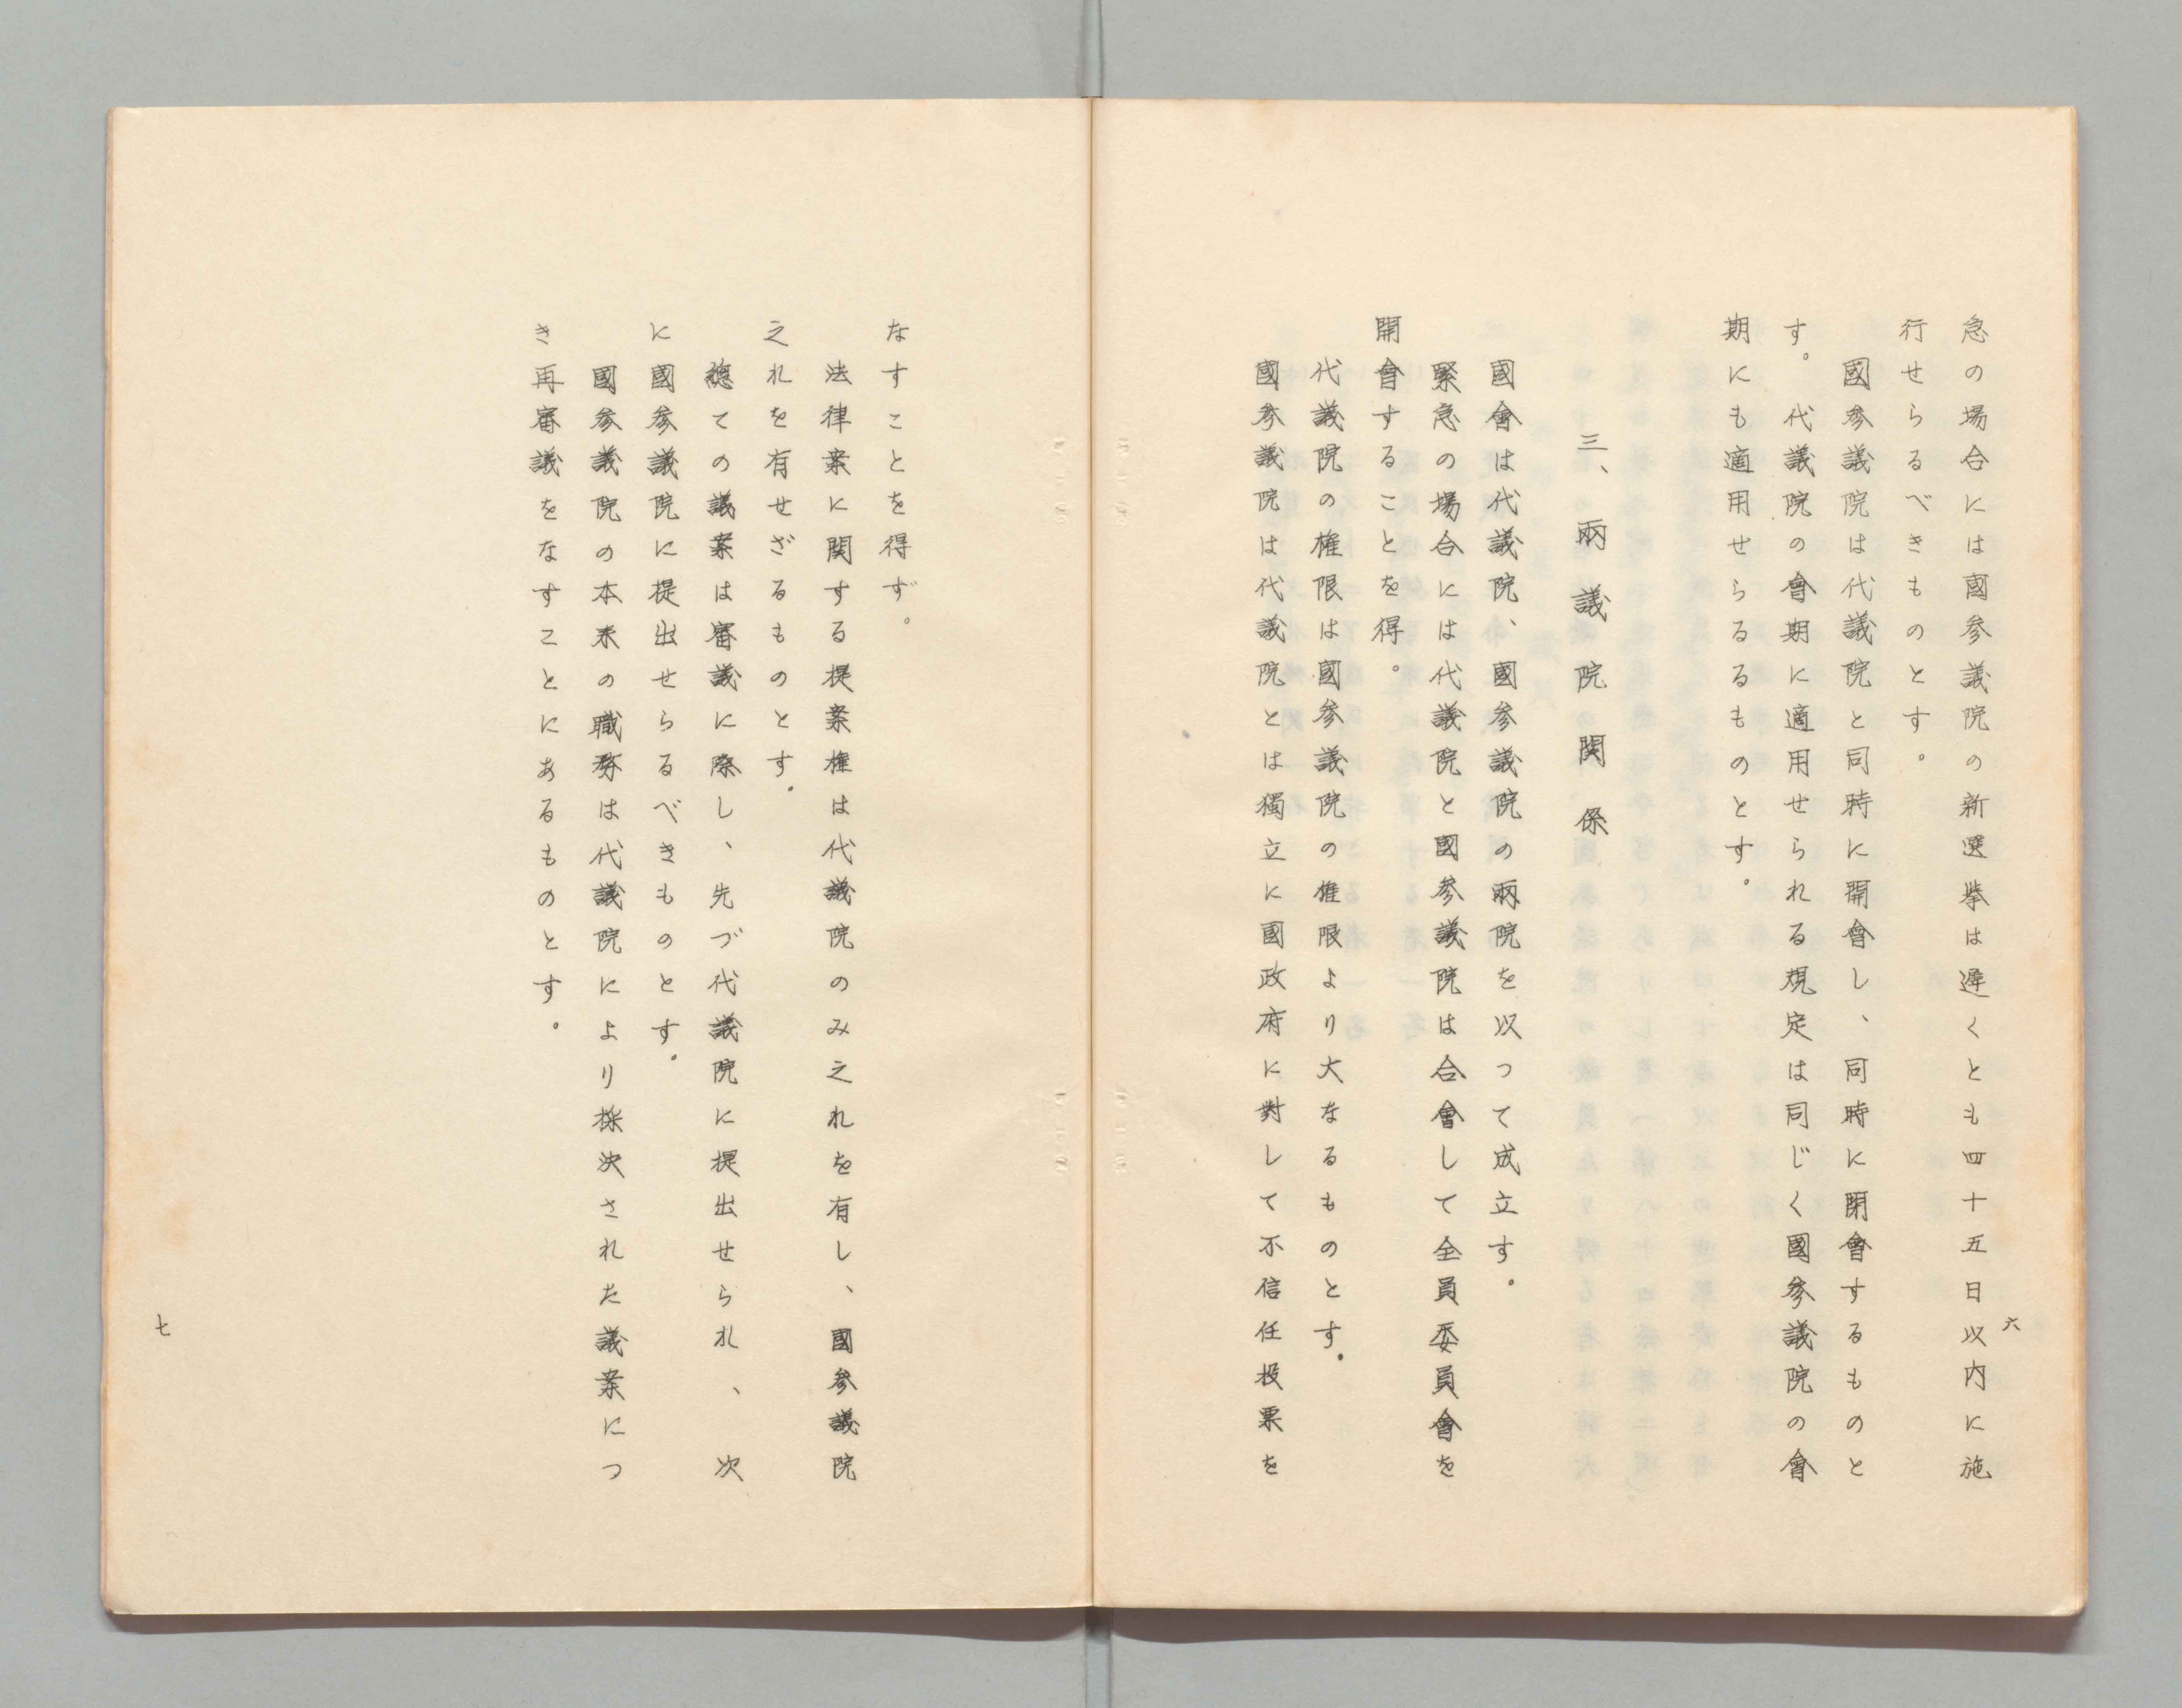 急の場合には國参議院の新選挙は遅くとも四十五日以内に施
行せらるべきものとす。
國参議院は代議院と同時に開會し、同時に閉會するものと
す。代議院の會期に適用せられる規定は同じく國参議院の會
期にも適用せらるるものとす。
三、兩議院関係
國會は代議院、國参議院の兩院を以つて成立す。
緊急の場合には代議院と國参議院は合會して全員委員會を
開會することを得。
代議院の権限は國参議院の権限より大なるものとす。
國参議院は代議院とは獨立に國政府に對して不信任投票を
六
なすことを得ず。
法律案に関する提案権は代議院のみ之れを有し、國参議院
之れを有せざるものとす。
總ての議案は審議に際し、先づ代議院に提出せられ、次
に國参議院に提出せらるべきものとす。
國参議院の本来の職務は代議院により採決された議案につ
き再審議をなすことにあるものとす。
七